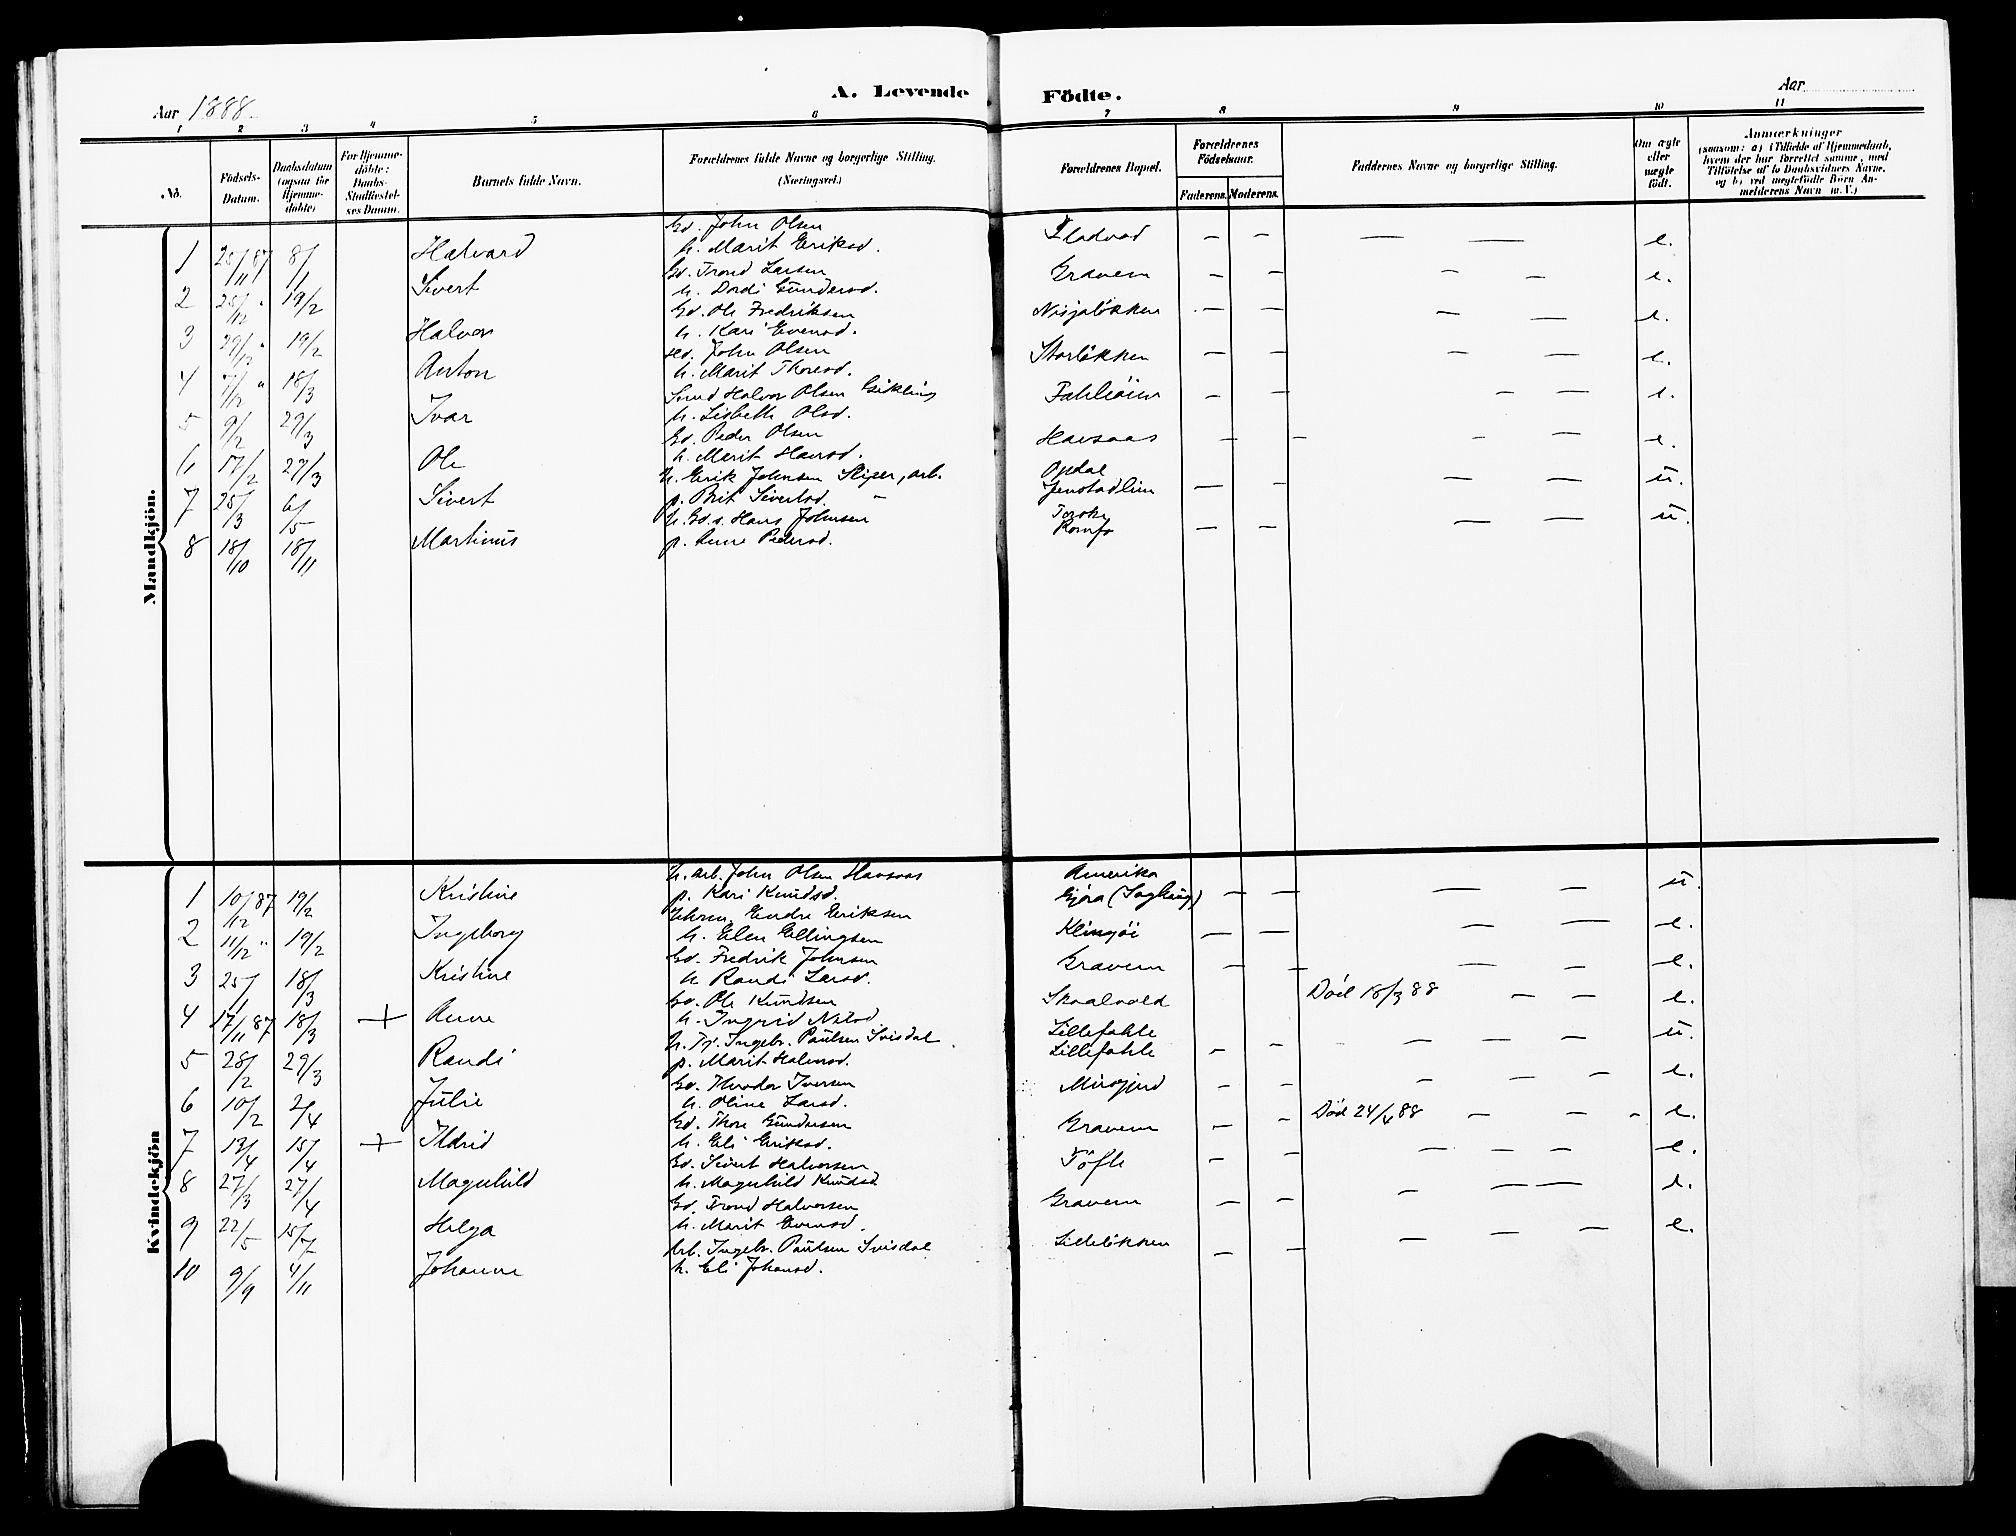 A. Levende Födte.
Aar 1888.
Aar
1 2 3 4 5 6 7 8 9 10 11
No.
Födsels-Datum.
Daabsdatum (ogsaa for Hjemme-döbte)
For Hjemme-döbte: Daabs-Stadfæstel-ses Datum.
Barnets fulde Navn.
Forældrenes fulde Navne og borgerlige Stilling. (Næringsvei.)
Forældrenes Bopæl.
Forældrenes Födselsaar.
Faderens. Moderens.
Faddernes Navne og borgerlige Stilling.
Om ægte eller uægte födt.
Anmærkninger
(saasom: a) i Tilfælde af Hjemmedaab, hvem der har forrettet samme, med Tilföielse af to Daabsvidners Navne, og b) ved uægtefödte Börn An-melderens Navn m. V.)
Mandkjön.
Gd. John Olsen
1 25/11 87 8/1 Halvard h. Marit Eriksd. — — — — e.
Gd. Trond Larsen Gravem
2 25/12 " 19/2 Sivert h. Dordi Gundersd. — — — — e.
Gd. Ole Fredriksen
3 29/12 " 19/2 Halvor h. Kari Evensd. — — — — e.
John Olsen Storløkken
4 7/12 " 18/3 Anton h. Marit Thoresd. — — — — e.
Smed Halvor Olsen Gikling
5 9/2 29/3 Ivar h. Lisbeth Olsd. — — — — e.
Gd. Peder Olsen Havsaas
6 17/2 29/3 Ole h. Marit — — — — e.
U. Erik Johnsen arb. Opdal
7 25/3 6/5 Sivert p. Brit Sivertsd. Jenstadlien — — — — u.
U. Gd.s. Hans Johnsen Torske
8 18/10 18/11 Martinus p. Anne Pedersd. Romfo — — — — u.
Kvindekjön
U. arb. John Olsen Havsaas Amerika
1 10/12 87 19/2 Kristine p. Kari Knudsd. Gjøra — — — — u.
Endre Eriksen
2 11/12 " 19/2 Ingeborg h. Elen Ellingsen Klingøi — — — — e.
Gd. Fredrik Johnsen Gravem
3 25/1 18/3 Kristine h Randi Larsd. — — — — e.
Gd. Ole Knudsen Skaalvold
4 17/11 87 18/3 + Anne h. Ingrid Død 18/3 88 — — e.
U. Ingebr. Paulsen Svisdal Lillefahle
5 28/2 29/3 Randi p. Marit Halvorsd. Lillefahle — — — — — u.
Gd. Iversen
6 10/2 2/4 Julie h. Oline Larsd. — — — — — e.
Gd. Thore Gundersen Gravem
7 13/4 15/4 + Ildrid h. Eli Eriksd. — — Død 24/4 88 — — - e.
Gd. Sivert Halvorsen Tøfte
8 27/3 27/4 Magnhild h. Magnhild Knudsd — — — — — e.
Gd. Trond Halvorsen Gravem
9 22/5 15/7 Helga h. Marit Evensd. — — — — — e.
Arb. Ingebr. Paulsen Svisdal Lilleløkken
10 9/9 4/11 Johanne h. Eli Johansd. — — — — — e.